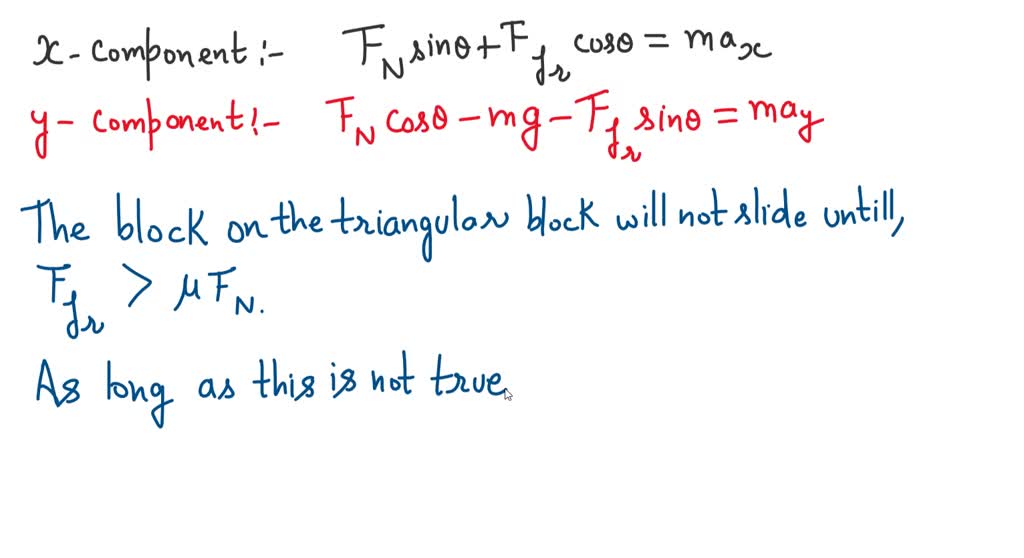 x-component:- F_N sinθ + F_fr cosθ = ma_x
y-component:- F_N cosθ - mg - F_fr sinθ = ma_y
The block on the triangular block will not slide untill,
F_fr > μF_N.
As long as this is not true